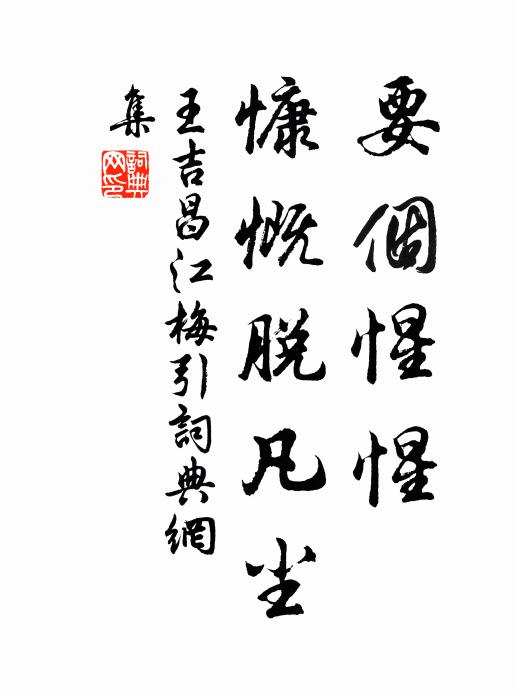 要個惺惺
慷慨脫凡尘
王吉昌江梅引詞典網
集
詞典
网印